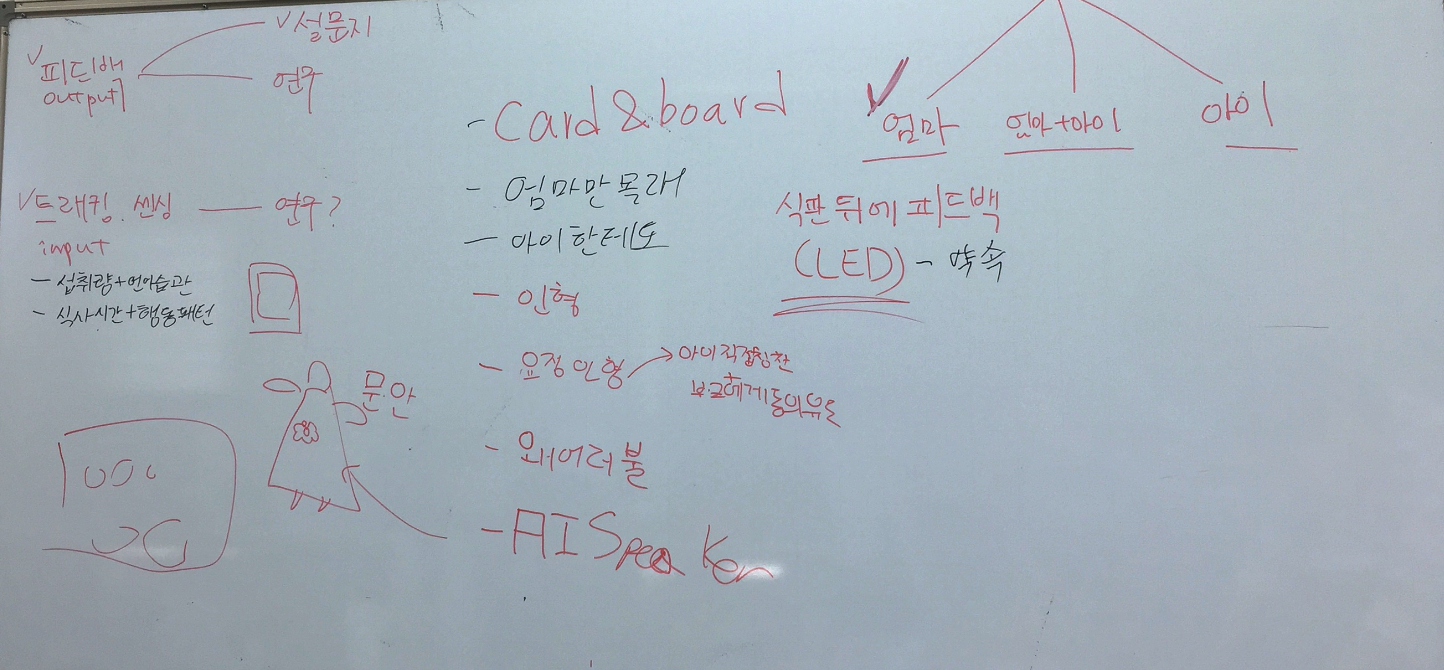 ✓설문지
✓피드백
output
연구
✓트래킹. 센싱 — 연구?
input
- 섭취량+언어습관
- 식사시간+행동패턴
문안
- Card & board
- 엄마만 몰래
- 아이한테도
- 인형
- 요정인형 → 아이직접칭찬
+
부모에게 동의유도
- 웨어러블
- AI Speaker
✓엄마
엄마+아이
아이
식판 뒤에 피드백
(LED) - 약속